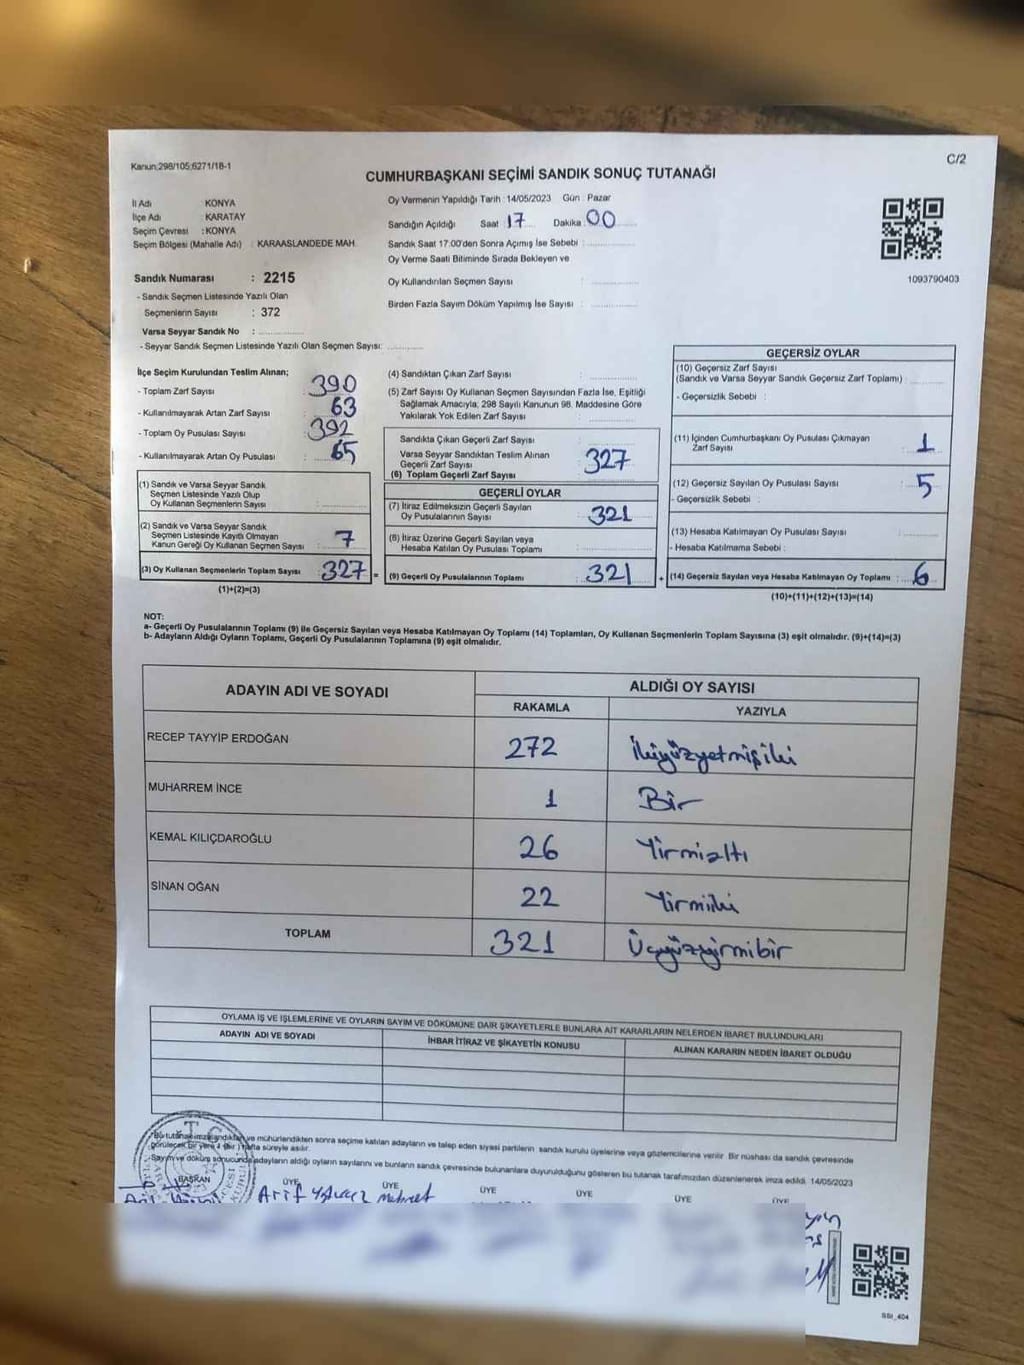 Kanun;298/105;6271/18-1
C/2
CUMHURBAŞKANI SEÇİMİ SANDIK SONUÇ TUTANAĞI
İl Adı KONYA
İlçe Adı KARATAY
Seçim Çevresi : KONYA
Seçim Bölgesi (Mahalle Adı) : KARAASLANDEDE MAH.
Sandık Numarası : 2215
- Sandık Seçmen Listesinde Yazılı Olan
Seçmenlerin Sayısı : 372
Varsa Seyyar Sandık No :
- Seyyar Sandık Seçmen Listesinde Yazılı Olan Seçmen Sayısı:
Oy Vermenin Yapıldığı Tarih : 14/05/2023 Gün : Pazar
Sandığın Açıldığı Saat 17 Dakika 00
Sandık Saat 17.00'den Sonra Açımış İse Sebebi :
Oy Verme Saati Bitiminde Sırada Bekleyen ve
Oy Kullandırılan Seçmen Sayısı :
Birden Fazla Sayım Döküm Yapılmış İse Sayısı :
1093790403
İlçe Seçim Kurulundan Teslim Alınan;
- Toplam Zarf Sayısı : 390
- Kullanılmayarak Artan Zarf Sayısı : 63
- Toplam Oy Pusulası Sayısı : 392
- Kullanılmayarak Artan Oy Pusulası : 65
(1) Sandık ve Varsa Seyyar Sandık
Seçmen Listesinde Yazılı Olup
Oy Kullanan Seçmenlerin Sayısı :
(2) Sandık ve Varsa Seyyar Sandık
Seçmen Listesinde Kayıtlı Olmayan
Kanun Gereği Oy Kullanan Seçmen Sayısı : 7
(3) Oy Kullanan Seçmenlerin Toplam Sayısı : 327 =
(1)+(2)=(3)
(4) Sandıktan Çıkan Zarf Sayısı :
(5) Zarf Sayısı Oy Kullanan Seçmen Sayısından Fazla İse, Eşitliği
Sağlamak Amacıyla, 298 Sayılı Kanunun 98. Maddesine Göre
Yakılarak Yok Edilen Zarf Sayısı :
Sandıkta Çıkan Geçerli Zarf Sayısı
Varsa Seyyar Sandıktan Teslim Alınan
Geçerli Zarf Sayısı
(6) Toplam Geçerli Zarf Sayısı : 327
GEÇERLİ OYLAR
(7) İtiraz Edilmeksizin Geçerli Sayılan
Oy Pusulalarının Sayısı : 321
(8) İtiraz Üzerine Geçerli Sayılan veya
Hesaba Katılan Oy Pusulası Toplamı :
(9) Geçerli Oy Pusulalarının Toplamı : 321 +
GEÇERSİZ OYLAR
(10) Geçersiz Zarf Sayısı
(Sandık ve Varsa Seyyar Sandık Geçersiz Zarf Toplamı) :
- Geçersizlik Sebebi :
(11) İçinden Cumhurbaşkanı Oy Pusulası Çıkmayan
Zarf Sayısı : 1
(12) Geçersiz Sayılan Oy Pusulası Sayısı : 5
- Geçersizlik Sebebi :
(13) Hesaba Katılmayan Oy Pusulası Sayısı :
- Hesaba Katılmama Sebebi :
(14) Geçersiz Sayılan veya Hesaba Katılmayan Oy Toplamı : 6
(10)+(11)+(12)+(13)=(14)
NOT:
a- Geçerli Oy Pusulalarının Toplamı (9) ile Geçersiz Sayılan veya Hesaba Katılmayan Oy Toplamı (14) Toplamları, Oy Kullanan Seçmenlerin Toplam Sayısına (3) eşit olmalıdır. (9)+(14)=(3)
b- Adayların Aldığı Oyların Toplamı, Geçerli Oy Pusulalarının Toplamına (9) eşit olmalıdır.
ADAYIN ADI VE SOYADI ALDIĞI OY SAYISI
RAKAMLA YAZIYLA
RECEP TAYYİP ERDOĞAN 272 İkiyüzyetmişiki
MUHARREM İNCE 1 Bir
KEMAL KILIÇDAROĞLU 26 Yirmialtı
SİNAN OĞAN 22 Yirmiiki
TOPLAM 321 Üçyüzyirmibir
OYLAMA İŞ VE İŞLEMLERİNE VE OYLARIN SAYIM VE DÖKÜMÜNE DAİR ŞİKAYETLERLE BUNLARA AİT KARARLARIN NELERDEN İBARET BULUNDUKLARI
ADAYIN ADI VE SOYADI İHBAR İTİRAZ VE ŞİKAYETİN KONUSU ALINAN KARARIN NEDEN İBARET OLDUĞU
- Bu tutanak imzalandıktan ve mühürlendikten sonra seçime katılan adayların ve talep eden siyasi partilerin sandık kurulu üyelerine veya gözlemcilerine verilir. Bir nüshası da sandık çevresinde
görülecek bir yere 1 (bir) hafta süreyle asılır.
- Sayım ve döküm sonucunda adayların aldığı oyların sayılarını ve bunların sandık çevresinde bulunanlara duyurulduğunu gösteren bu tutanak tarafımızdan düzenlenerek imza edildi. 14/05/2023
BAŞKAN ÜYE ÜYE ÜYE ÜYE ÜYE ÜYE
Arif Mehmet
SSI_404